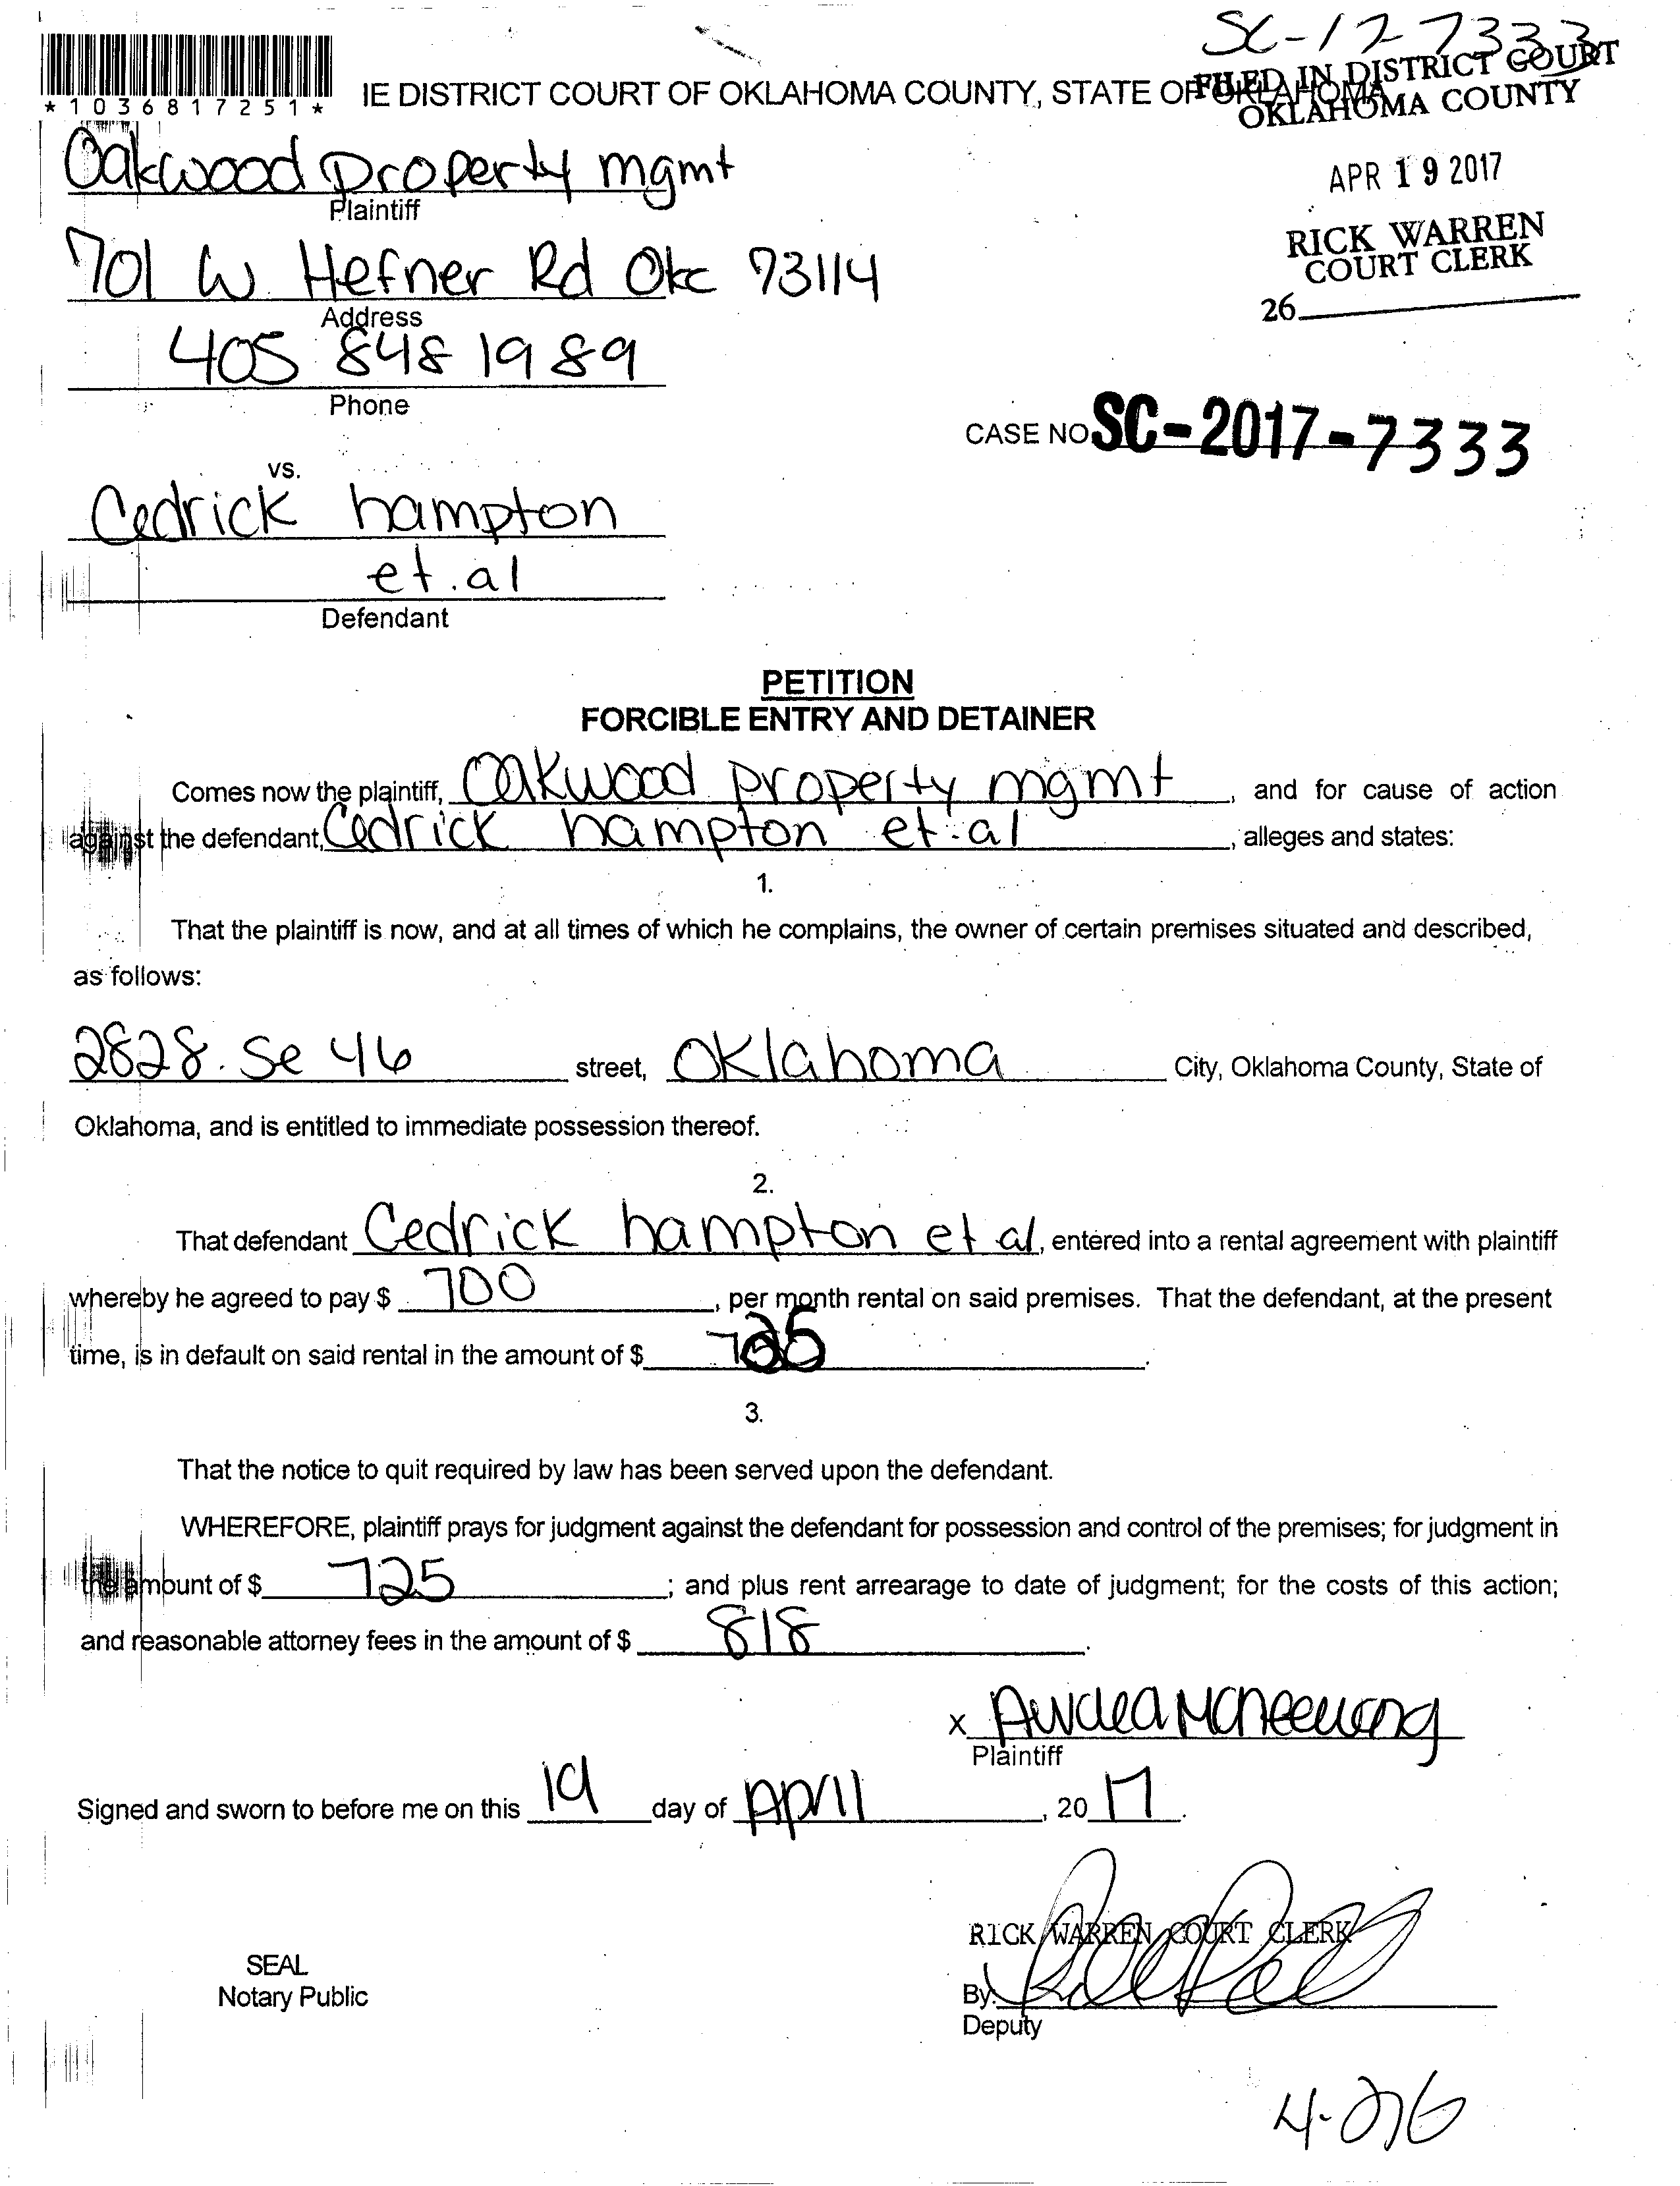 SC-17-7333
*1036817251*
IE DISTRICT COURT OF OKLAHOMA COUNTY, STATE OF OKLAHOMA
FILED IN DISTRICT COURT
OKLAHOMA COUNTY
Oakwood property mgmt
Plaintiff
APR 19 2017
RICK WARREN
COURT CLERK
701 W. Hefner Rd Okc 73114
Address
26
405 848 1989
Phone
CASE NO. SC-2017-7333
vs.
Cedrick hampton
et.al
Defendant
PETITION
FORCIBLE ENTRY AND DETAINER
Comes now the plaintiff, Oakwood property mgmt, and for cause of action
against the defendant, Cedrick hampton et.al, alleges and states:
1.
That the plaintiff is now, and at all times of which he complains, the owner of certain premises situated and described,
as follows:
2828. Se 46 street, Oklahoma City, Oklahoma County, State of
Oklahoma, and is entitled to immediate possession thereof.
2.
That defendant Cedrick hampton et al, entered into a rental agreement with plaintiff
whereby he agreed to pay $ 700, per month rental on said premises. That the defendant, at the present
time, is in default on said rental in the amount of $ .
3.
That the notice to quit required by law has been served upon the defendant.
WHEREFORE, plaintiff prays for judgment against the defendant for possession and control of the premises; for judgment in
the amount of $ 725; and plus rent arrearage to date of judgment; for the costs of this action;
and reasonable attorney fees in the amount of $ 818.
x
Plaintiff
Signed and sworn to before me on this 19 day of April, 20 17.
RICK WARREN COURT CLERK
SEAL
Notary Public
By:
Deputy
4-276